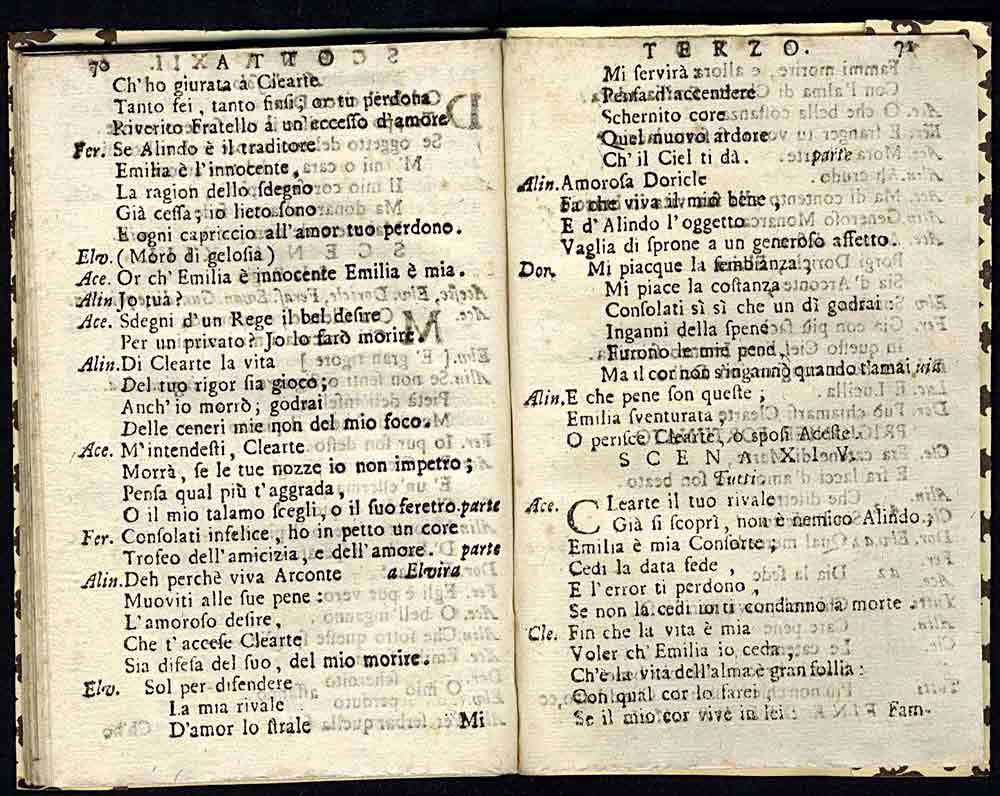 70 ATTO
Ch'ho giurata à Clearte
Tanto fei, tanto finsi; or tu perdona
Riverito Fratello á un'eccesso d'amore
Fer. Se Alindo è il traditore
Emilia è l'innocente,
La ragion dello sdegno
Già cessa; io lieto sono
E ogni capriccio all'amor tuo perdono.
Elv. (Moro di gelosia)
Ace. Or ch' Emilia è innocente Emilia è mia.
Alin. Jo tuà?
Ace. Sdegni d'un Rege il bel desire
Per un privato? Jo lo farò morire.
Alin. Di Clearte la vita
Del tuo rigor sia gioco;
Anch' io morrò; godrai
Delle ceneri mie non del mio foco.
Ace. M'intendesti, Clearte
Morrà, se le tue nozze io non impetro;
Pensa qual più t'aggrada,
O il mio talamo scegli, o il suo feretro. parte
Fer. Consolati infelice, ho in petto un core
Trofeo dell'amicizia, e dell'amore. parte
Alin. Deh perchè viva Arconte a Elvira
Muoviti alle sue pene:
L'amoroso desire,
Che t'accese Clearte
Sia difesa del suo, del mio morire.
Elv. Sol per difendere
La mia rivale
D'amor lo strale Mi
TERZO. 71
Mi servirà
Pensa d'accendere
Schernito core
Quel nuovo ardore
Ch' il Ciel ti dà. parte
Alin. Amorosa Doricle
Fa che viva il mio bene,
E d' Alindo l'oggetto
Vaglia di sprone a un generoso affetto.
Dor. Mi piacque la sembianza,
Mi piace la costanza
Consolati sì sì che un dì godrai:
Inganni della spene
Furono le mie pene,
Ma il cor non s'ingannò quando t'amai, via
Alin. E che pene son queste;
Emilia sventurata,
O perisce Clearte, o sposi Aceste.
SCENA XIV.
Tutti
Ace. CLearte il tuo rivale
Già si scoprì, non è nemico Alindo;
Emilia è mia Consorte;
Cedi la data fede,
E l'error ti perdono,
Se non la cedi io ti condanno a morte.
Cle. Fin che la vita è mia
Voler ch' Emilia io ceda,
Ch'è la vita dell'alma è gran follia:
Con qual cor lo farei
Se il mio cor vive in lei: Fam-